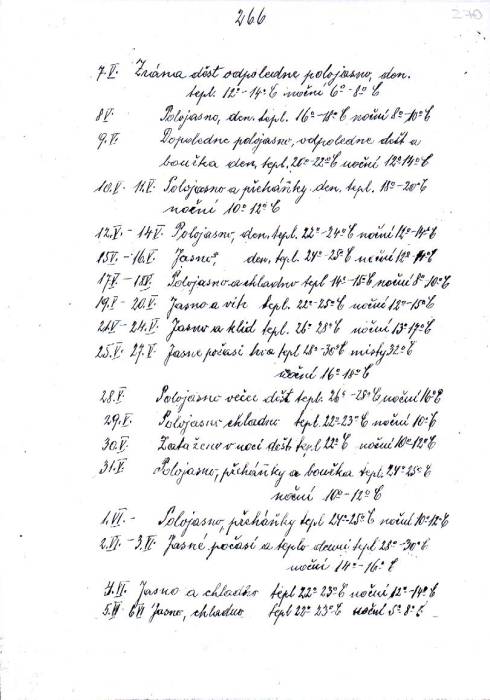 266
270
7.V. Zrána déšť odpoledne polojasno, den.
tepl. 12º-14ºC noční 6º-8ºC
8V. Polojasno, den. tepl. 16º-18ºC noční 8º-10ºC
9.V. Dopoledne polojasno, odpoledne déšť a
bouřka den. tepl. 20º-22ºC noční 12º14ºC
10.V. 11.V. Polojasno a přeháňky den. tepl. 18º-20ºC
noční 10º-12ºC
12.V. - 14V. Polojasno, den. tepl. 22º-24ºC noční 12º-14ºC
15V. - 16.V. Jasno, den. tepl. 24º-25ºC noční 12º-14ºC
17V. - 18V. Polojasno a chladno tepl 14º-15ºC noční 8º 10ºC
19.V. - 20.V. Jasno a vítr tepl. 22º-25ºC noční 12º-15ºC
21.V - 24.V. Jasno a klid tepl. 26º 28ºC noční 13º-17ºC
25.V. 27.V. Jasné počasí trvá tepl 28º-30ºC místy 32ºC
noční 16º-18ºC
28.V. Polojasno večer déšť tepl. 26º-28ºC, noční 16ºC
29.V. Polojasno chladno tepl. 22-23ºC noční 10ºC
30.V. Zataženo v noci déšť tepl 22ºC noční 10º-12ºC
31.V. Polojasno, přeháňky a bouřka tepl. 24º25ºC
noční 10º-12ºC
1.VI. - Polojasno, přeháňky tepl 24º-25ºC noční 10º12ºC
2.VI. - 3.VI. Jasné počasí a teplo denní tepl 28º-30ºC
noční 14º-16ºC
4.VI. Jasno a chladno tepl 22º 23ºC noční 12º-14ºC
5.VI 6.VI Jasno, chladno tepl 22º 23ºC noční 5º 8ºC